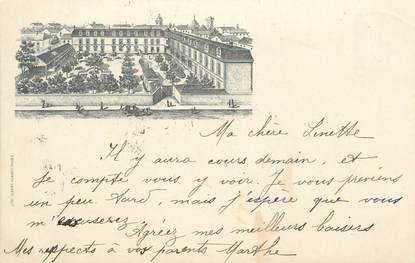 Ma chère Linette
Il y aura cours demain, et
je compte vous y voir. Je vous préviens
un peu tard, mais j'espère que vous
m'excuserez. Agréez mes meilleurs baisers
Mes respects à vos parents Marthe